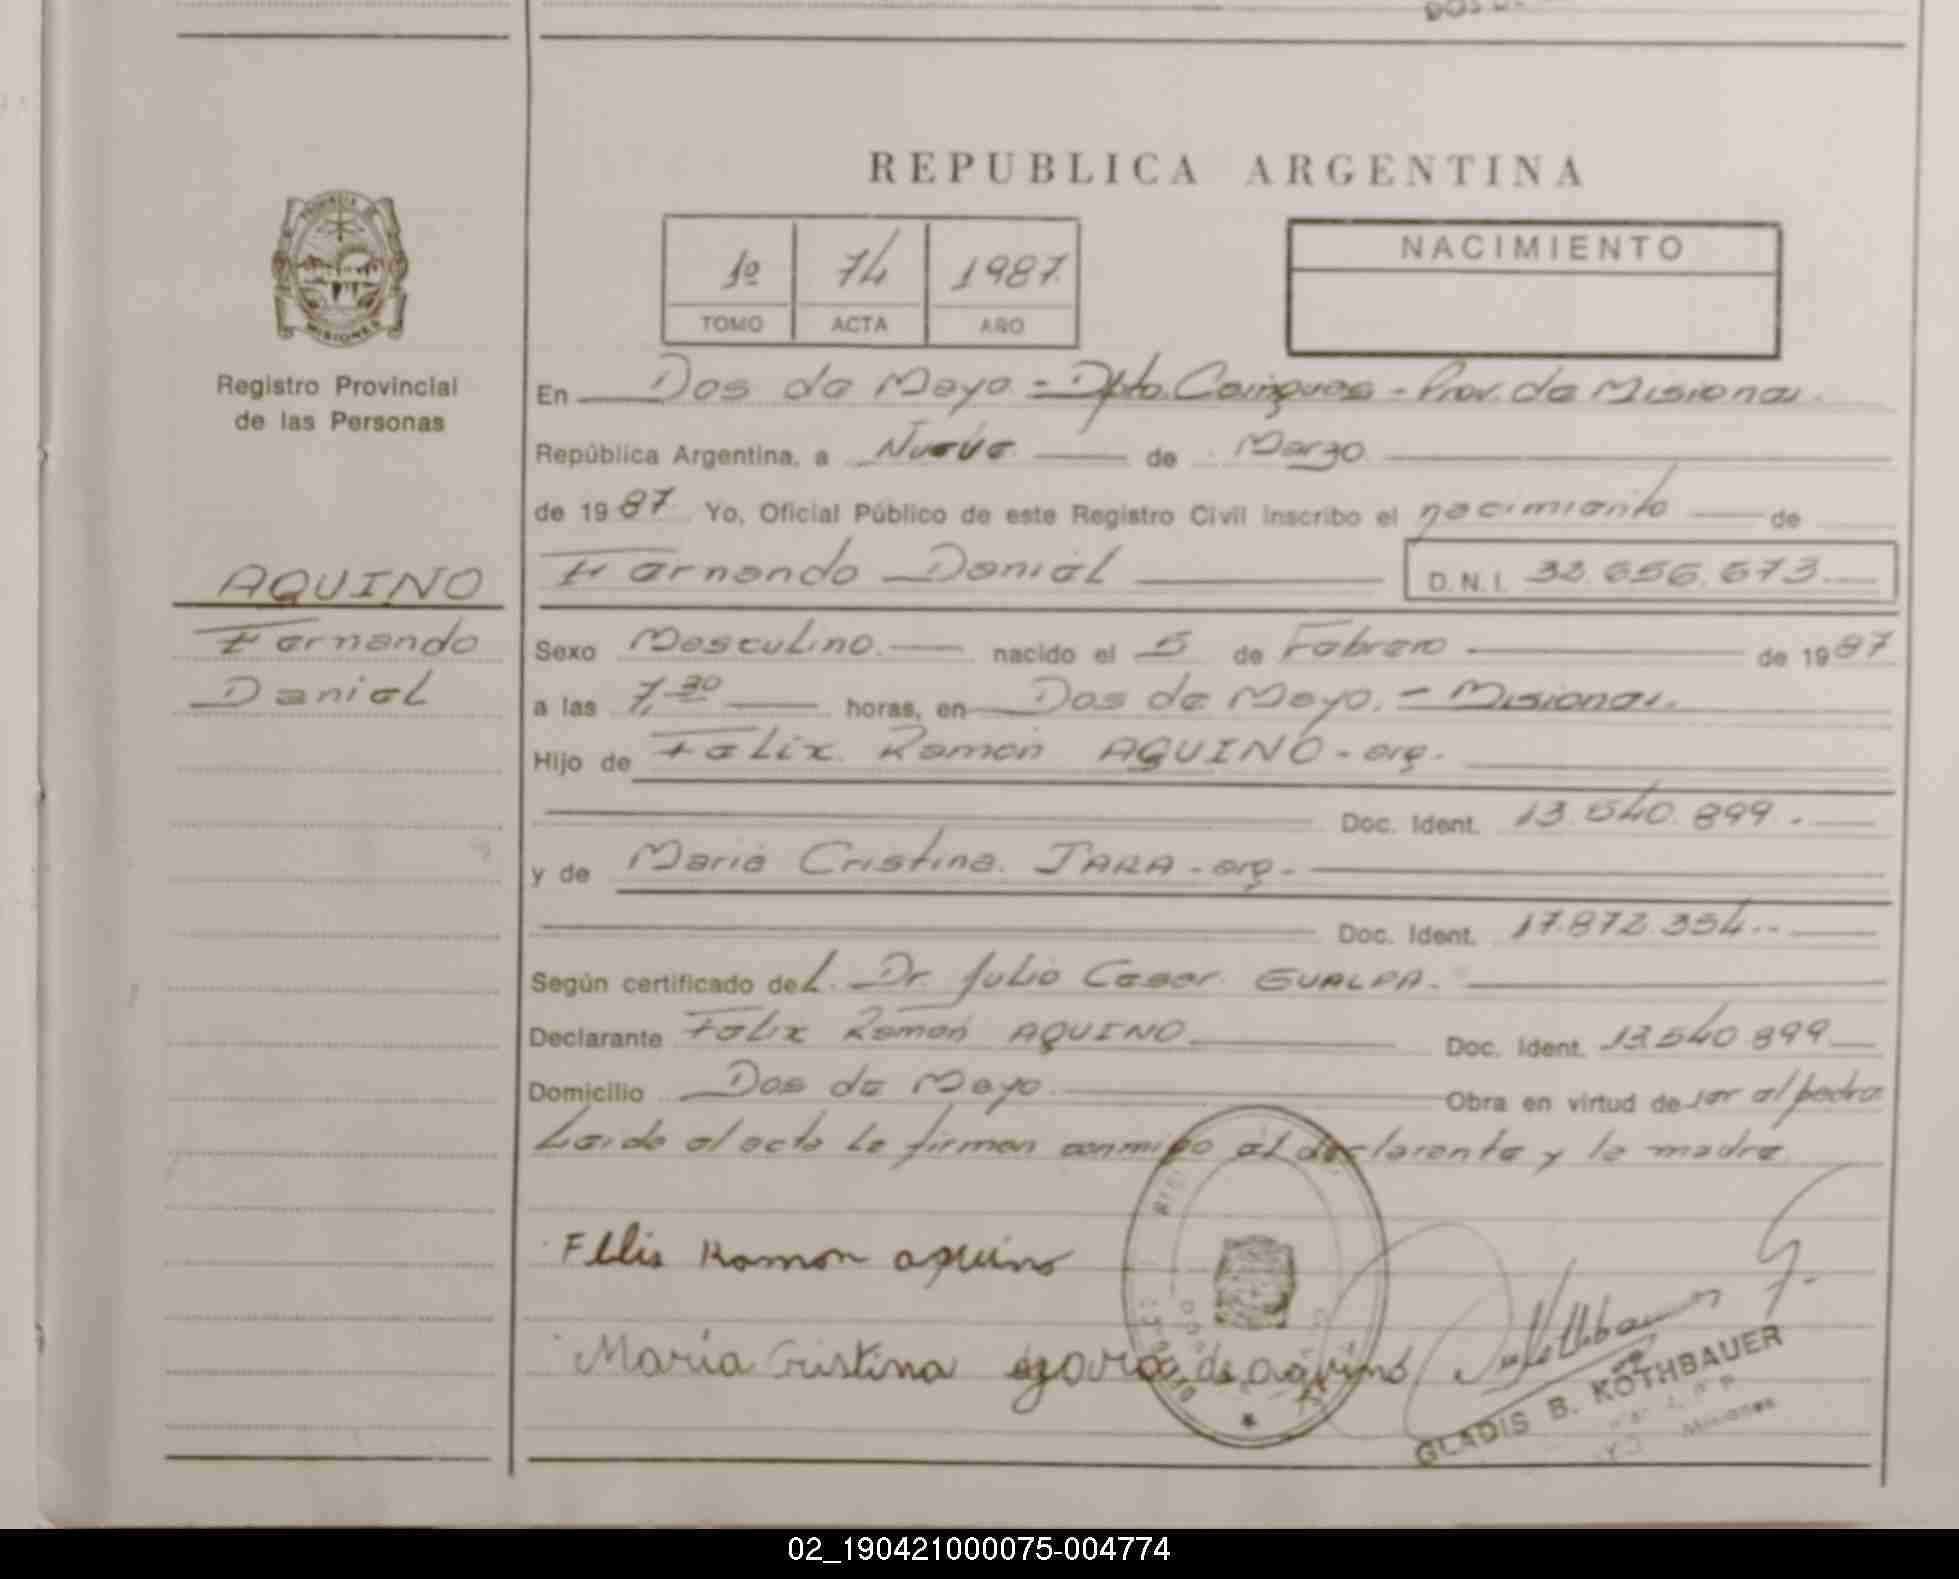 REPUBLICA ARGENTINA
PROVINCIA DE
MISIONES
Registro Provincial
de las Personas
1º 74 1987
TOMO ACTA AÑO
NACIMIENTO
En Dos de Mayo - Dpto. Cainguas - Prov. de Misiones.
República Argentina, a Nueve de Marzo
de 1987 Yo, Oficial Público de este Registro Civil inscribo el nacimiento de
AQUINO
Fernando
Daniel
Fernando Daniel D.N.I. 32.656.673.
Sexo Masculino. nacido el 5 de Febrero de 1987
a las 7,30 horas, en Dos de Mayo. - Misiones.
Hijo de Felix Ramón AQUINO - arg.
Doc. Ident. 13.540.899.
y de Maria Cristina JARA - arg.
Doc. Ident. 17.872.354.
Según certificado del Dr. Julio Cesar GUALPA.
Declarante Felix Ramón AQUINO Doc. Ident. 13.540.899
Domicilio Dos de Mayo. Obra en virtud de ser el padre
Leido el acta la firman conmigo el declarante y la madre
Fllis Ramon aquino
María Cristina de aquino
GLADIS B. KOTHBAUER
Misiones
02_190421000075-004774